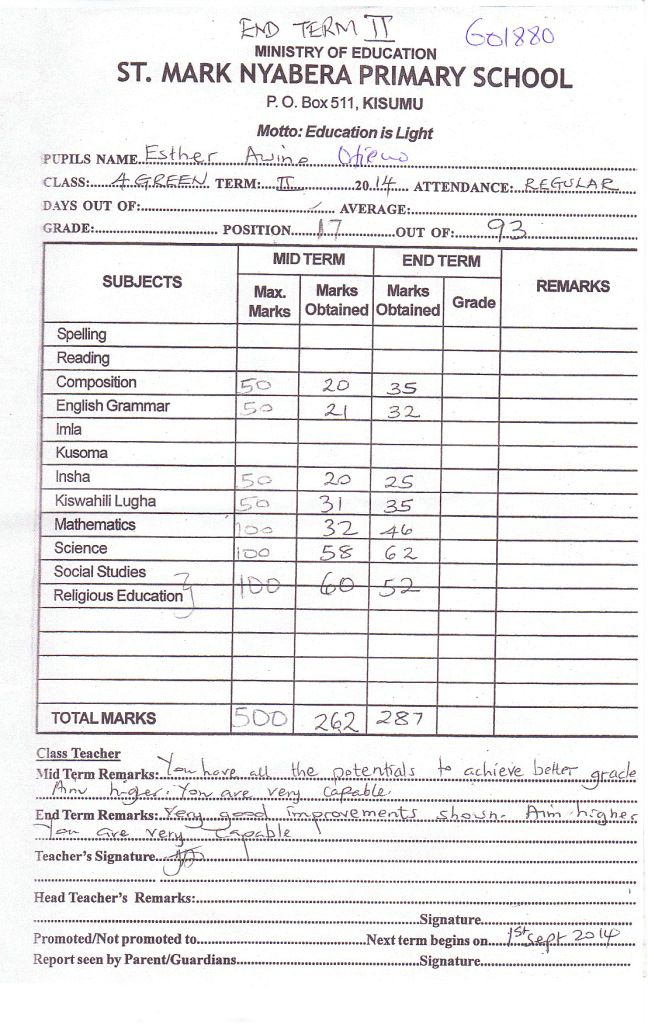 END TERM II
GO1880
MINISTRY OF EDUCATION
ST. MARK NYABERA PRIMARY SCHOOL
P. O. Box 511, KISUMU
Motto: Education is Light
PUPILS NAME..Esther Awino Otieno
CLASS:....4 GREEN TERM:....II..............20.14.... ATTENDANCE:..REGULAR
DAYS OUT OF:.................................... AVERAGE:............................................
GRADE:.............................. POSITION......17..............OUT OF:........93......................
SUBJECTS MID TERM END TERM REMARKS
Max. Marks Marks Obtained Marks Obtained Grade
Spelling
Reading
Composition 50 20 35
English Grammar 50 21 32
Imla
Kusoma
Insha 50 20 25
Kiswahili Lugha 50 31 35
Mathematics 100 32 46
Science 100 58 62
Social Studies
Religious Education } 100 60 52
TOTAL MARKS 500 262 287
Class Teacher
Mid Term Remarks: You have all the potentials to achieve better grade
Aim higher. You are very capable.
End Term Remarks: Very good improvements shown. Aim higher
You are very capable
Teacher's Signature..............
Head Teacher's Remarks:........................................
Signature..............................
Promoted/Not promoted to..............................Next term begins on....1st Sept 2014
Report seen by Parent/Guardians..............................Signature..............................